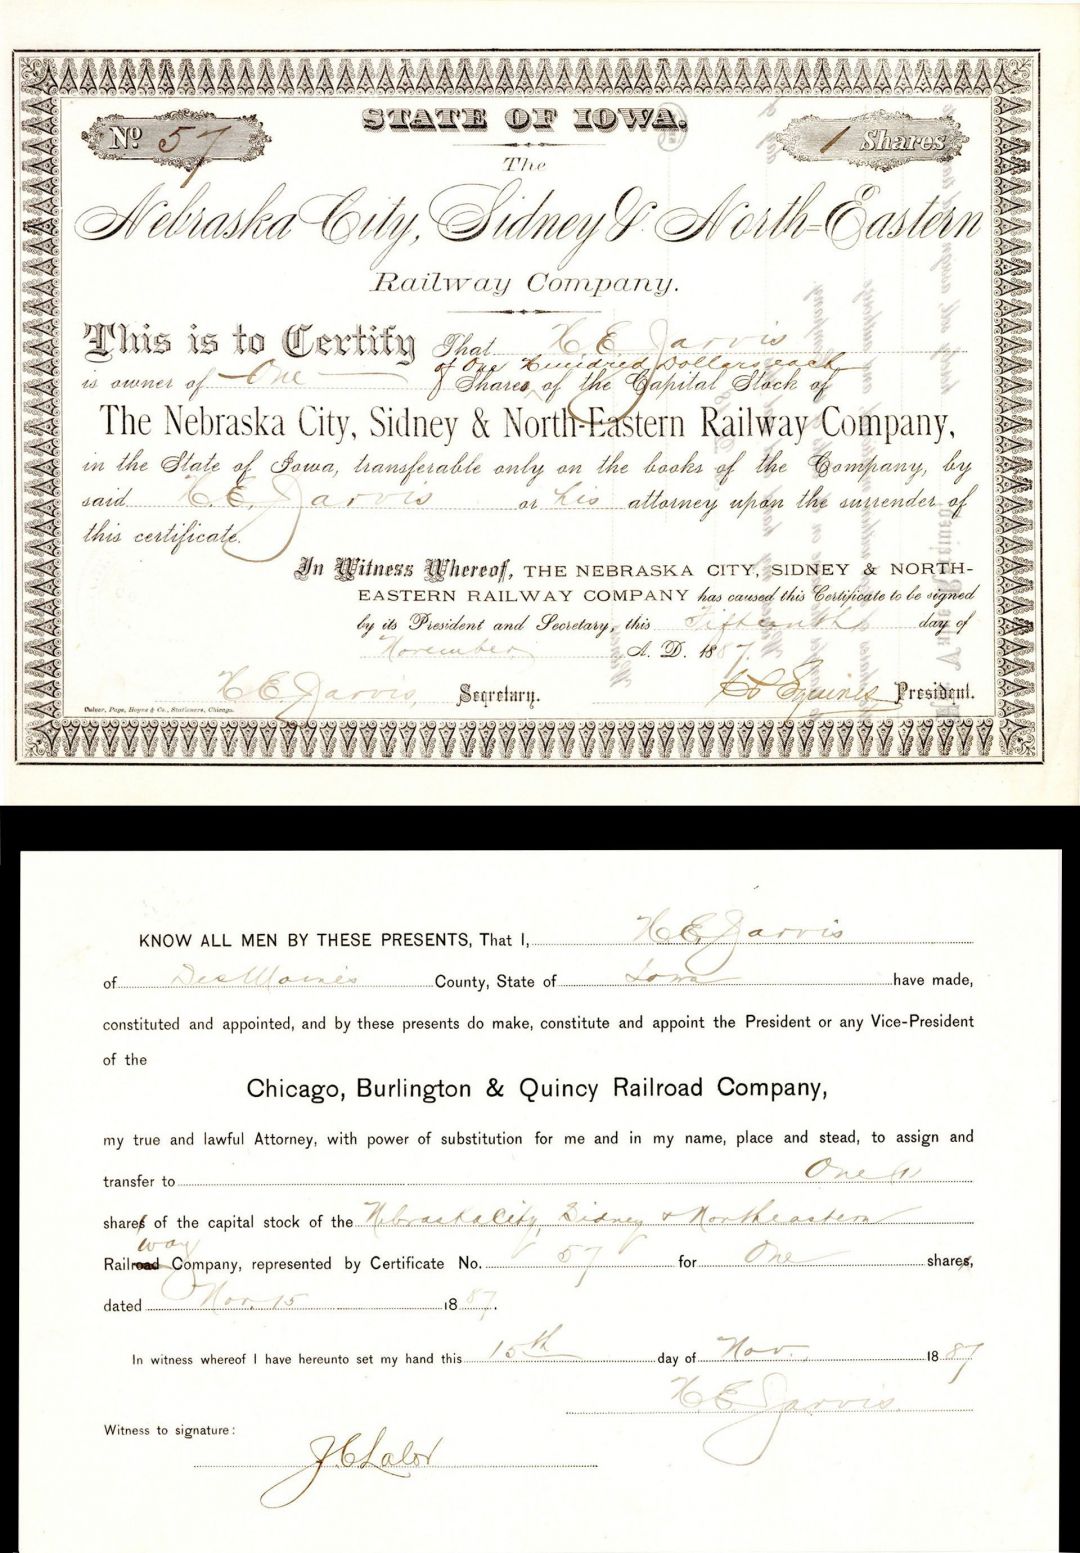 STATE OF IOWA.
No. 57
1 Shares
The
Nebraska City, Sidney & North-Eastern
Railway Company.
This is to Certify That H E Jarvis
of One Hundred Dollars each
is owner of One Shares of the Capital Stock of
The Nebraska City, Sidney & North-Eastern Railway Company,
in the State of Iowa, transferable only on the books of the Company, by
said H. E. Jarvis or his attorney upon the surrender of
this certificate.
In Witness Whereof, THE NEBRASKA CITY, SIDNEY & NORTH-
EASTERN RAILWAY COMPANY has caused this Certificate to be signed
by its President and Secretary, this Fifteenth day of
November A. D. 1887.
H E Jarvis, Secretary. President.
Culver, Page, Hoyne & Co., Stationers, Chicago.
KNOW ALL MEN BY THESE PRESENTS, That I, H E Jarvis
of Des Moines County, State of Iowa have made,
constituted and appointed, and by these presents do make, constitute and appoint the President or any Vice-President
of the
Chicago, Burlington & Quincy Railroad Company,
my true and lawful Attorney, with power of substitution for me and in my name, place and stead, to assign and
transfer to One (1)
shares of the capital stock of the Nebraska City, Sidney & Northeastern
way
Railroad Company, represented by Certificate No. 57 for One shares,
dated Nov. 15 1887.
In witness whereof I have hereunto set my hand this 15th day of Nov. 1887
H E Jarvis.
Witness to signature:
J C Lalor